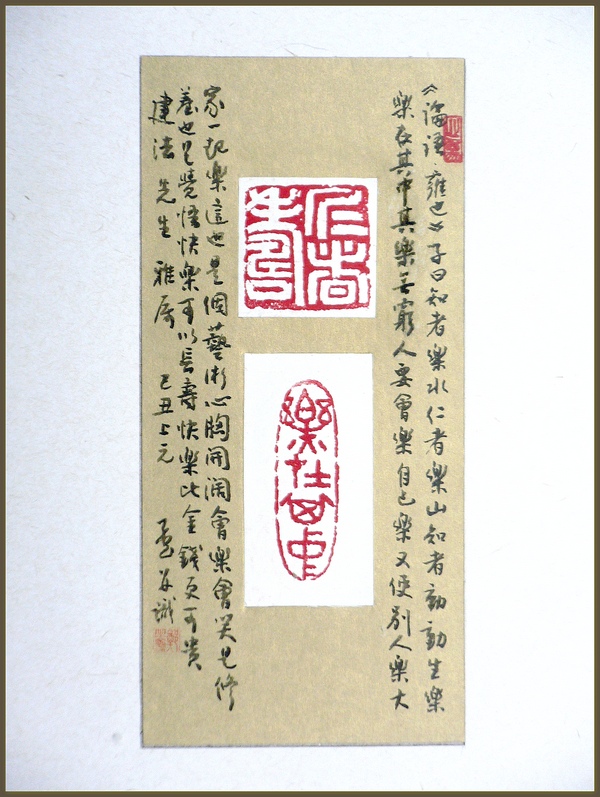 《論語·雍也》子曰知者樂水仁者樂山知者動動生樂
樂在其中其樂無窮人要會樂自己樂又使別人樂大
仁者壽
樂在其中
家一起樂這也是個藝術心胸開闊會樂會笑是修
養也是覺悟快樂可以長壽快樂比金錢更可貴
建法先生雅属 己丑上元 識